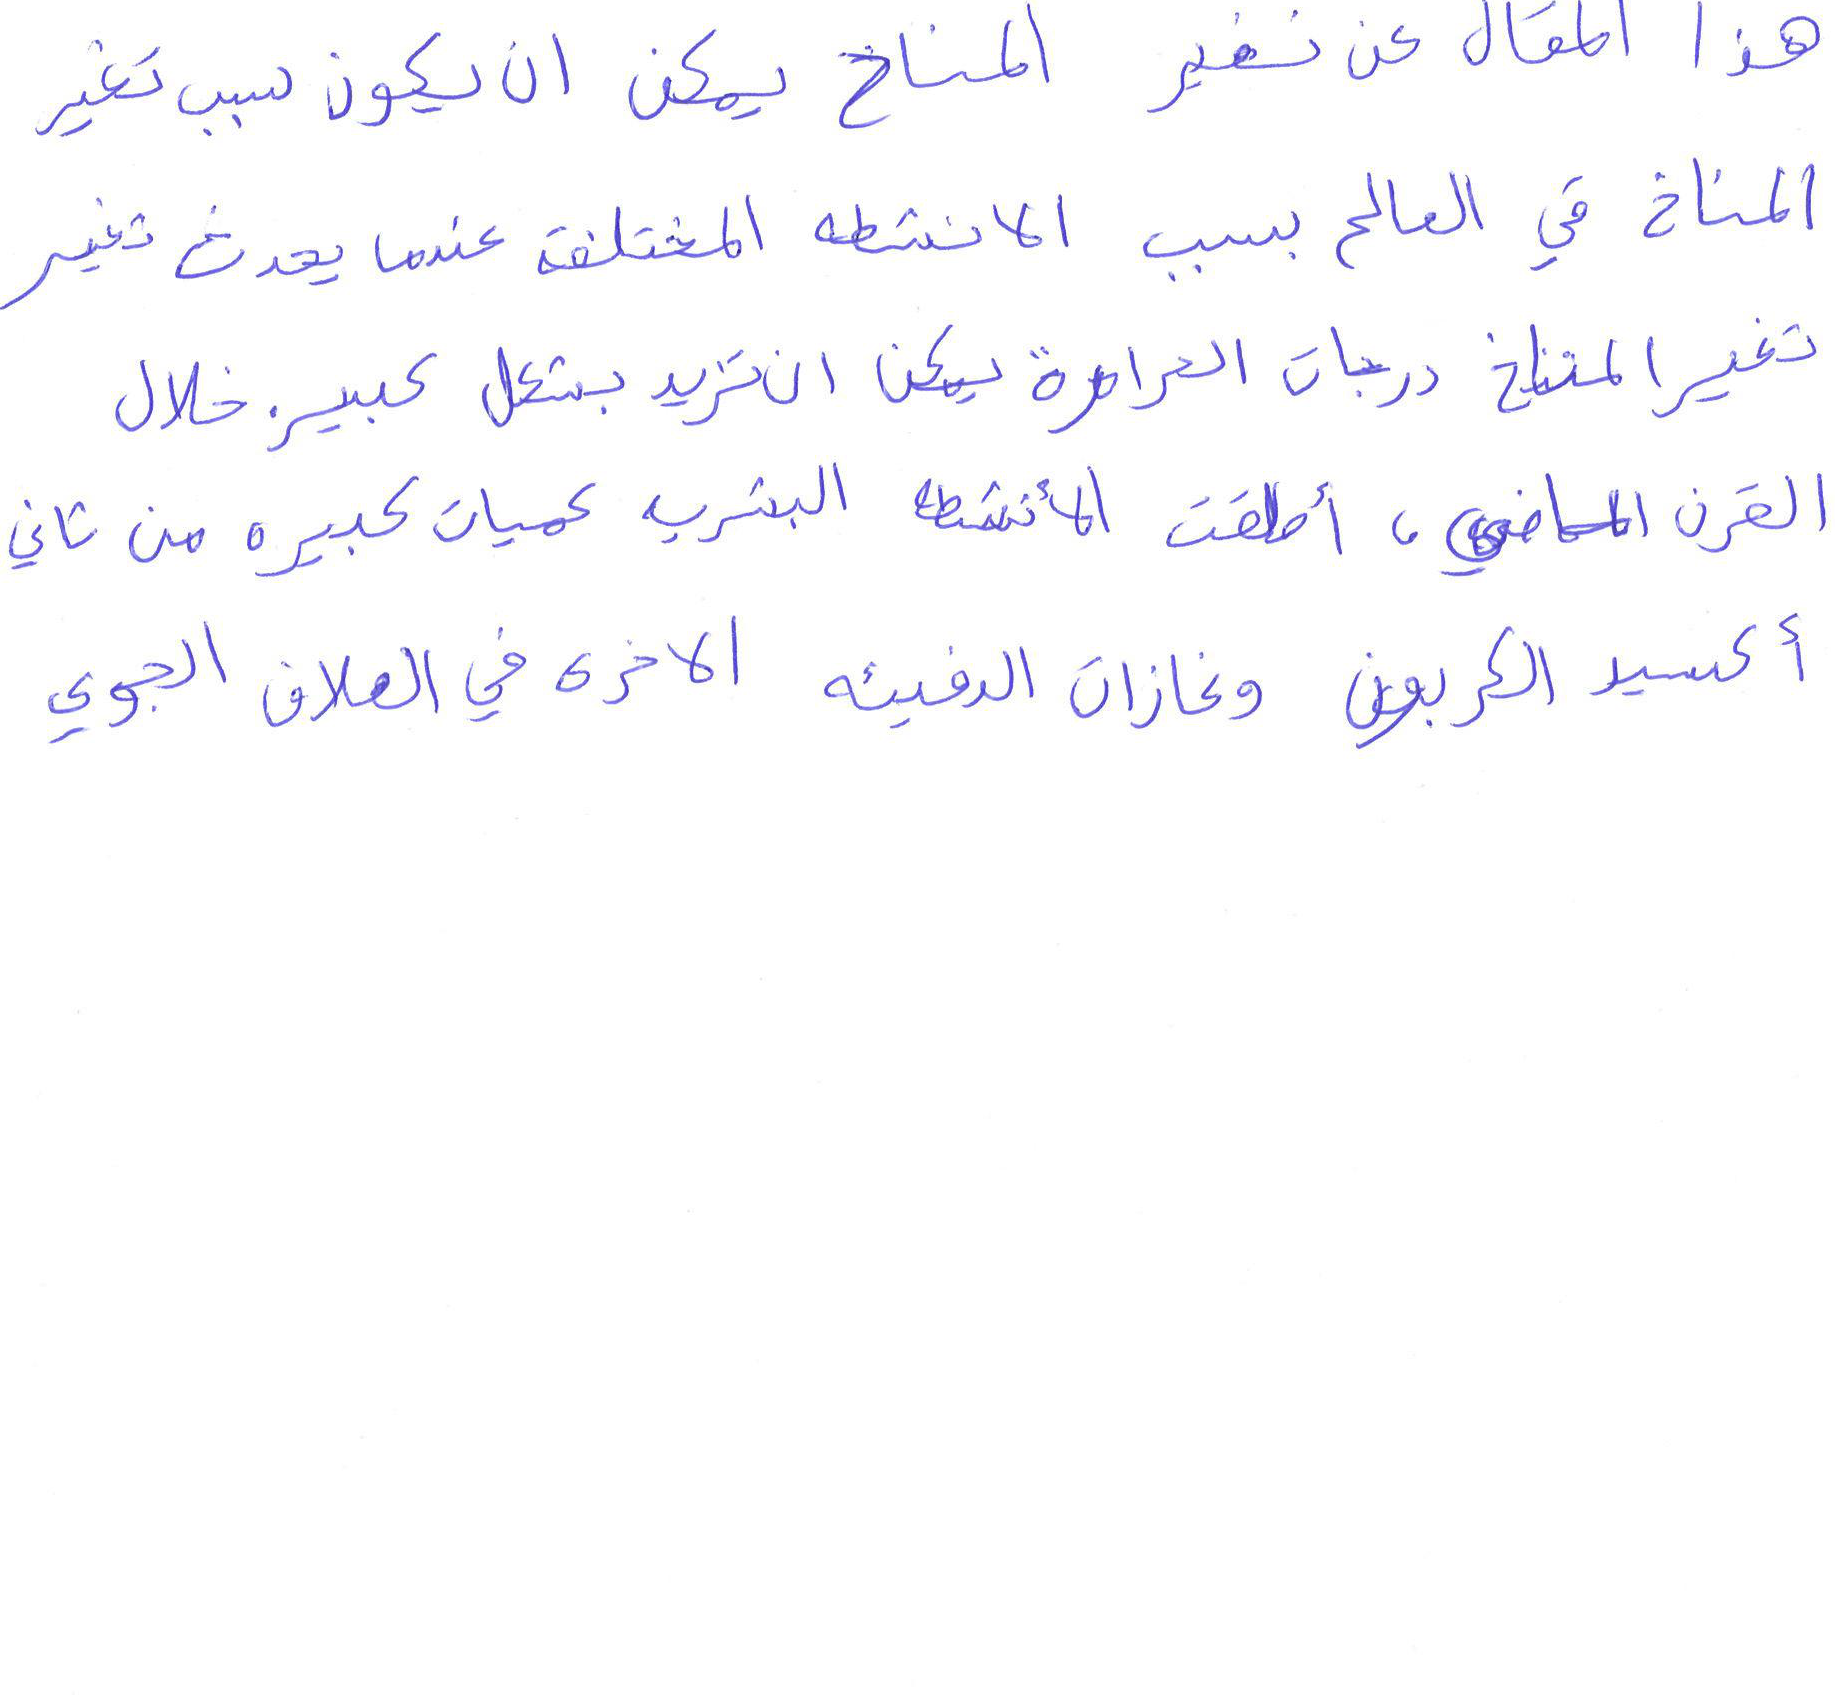 هذا المقال عن تغير المناخ يمكن ان يكون سبب تغير
المناخ في العالم بسبب الانشطه المختلفة عندما يحدث تغير
تغير المناخ درجات الحرارة يمكن ان تزيد بشكل كبير. خلال
القرن الماضي، أطلقت الأنشطه البشريه كميات كبيره من ثاني
أكسيد الكربون وغازات الدفيئه الاخرى في الغلاف الجوي